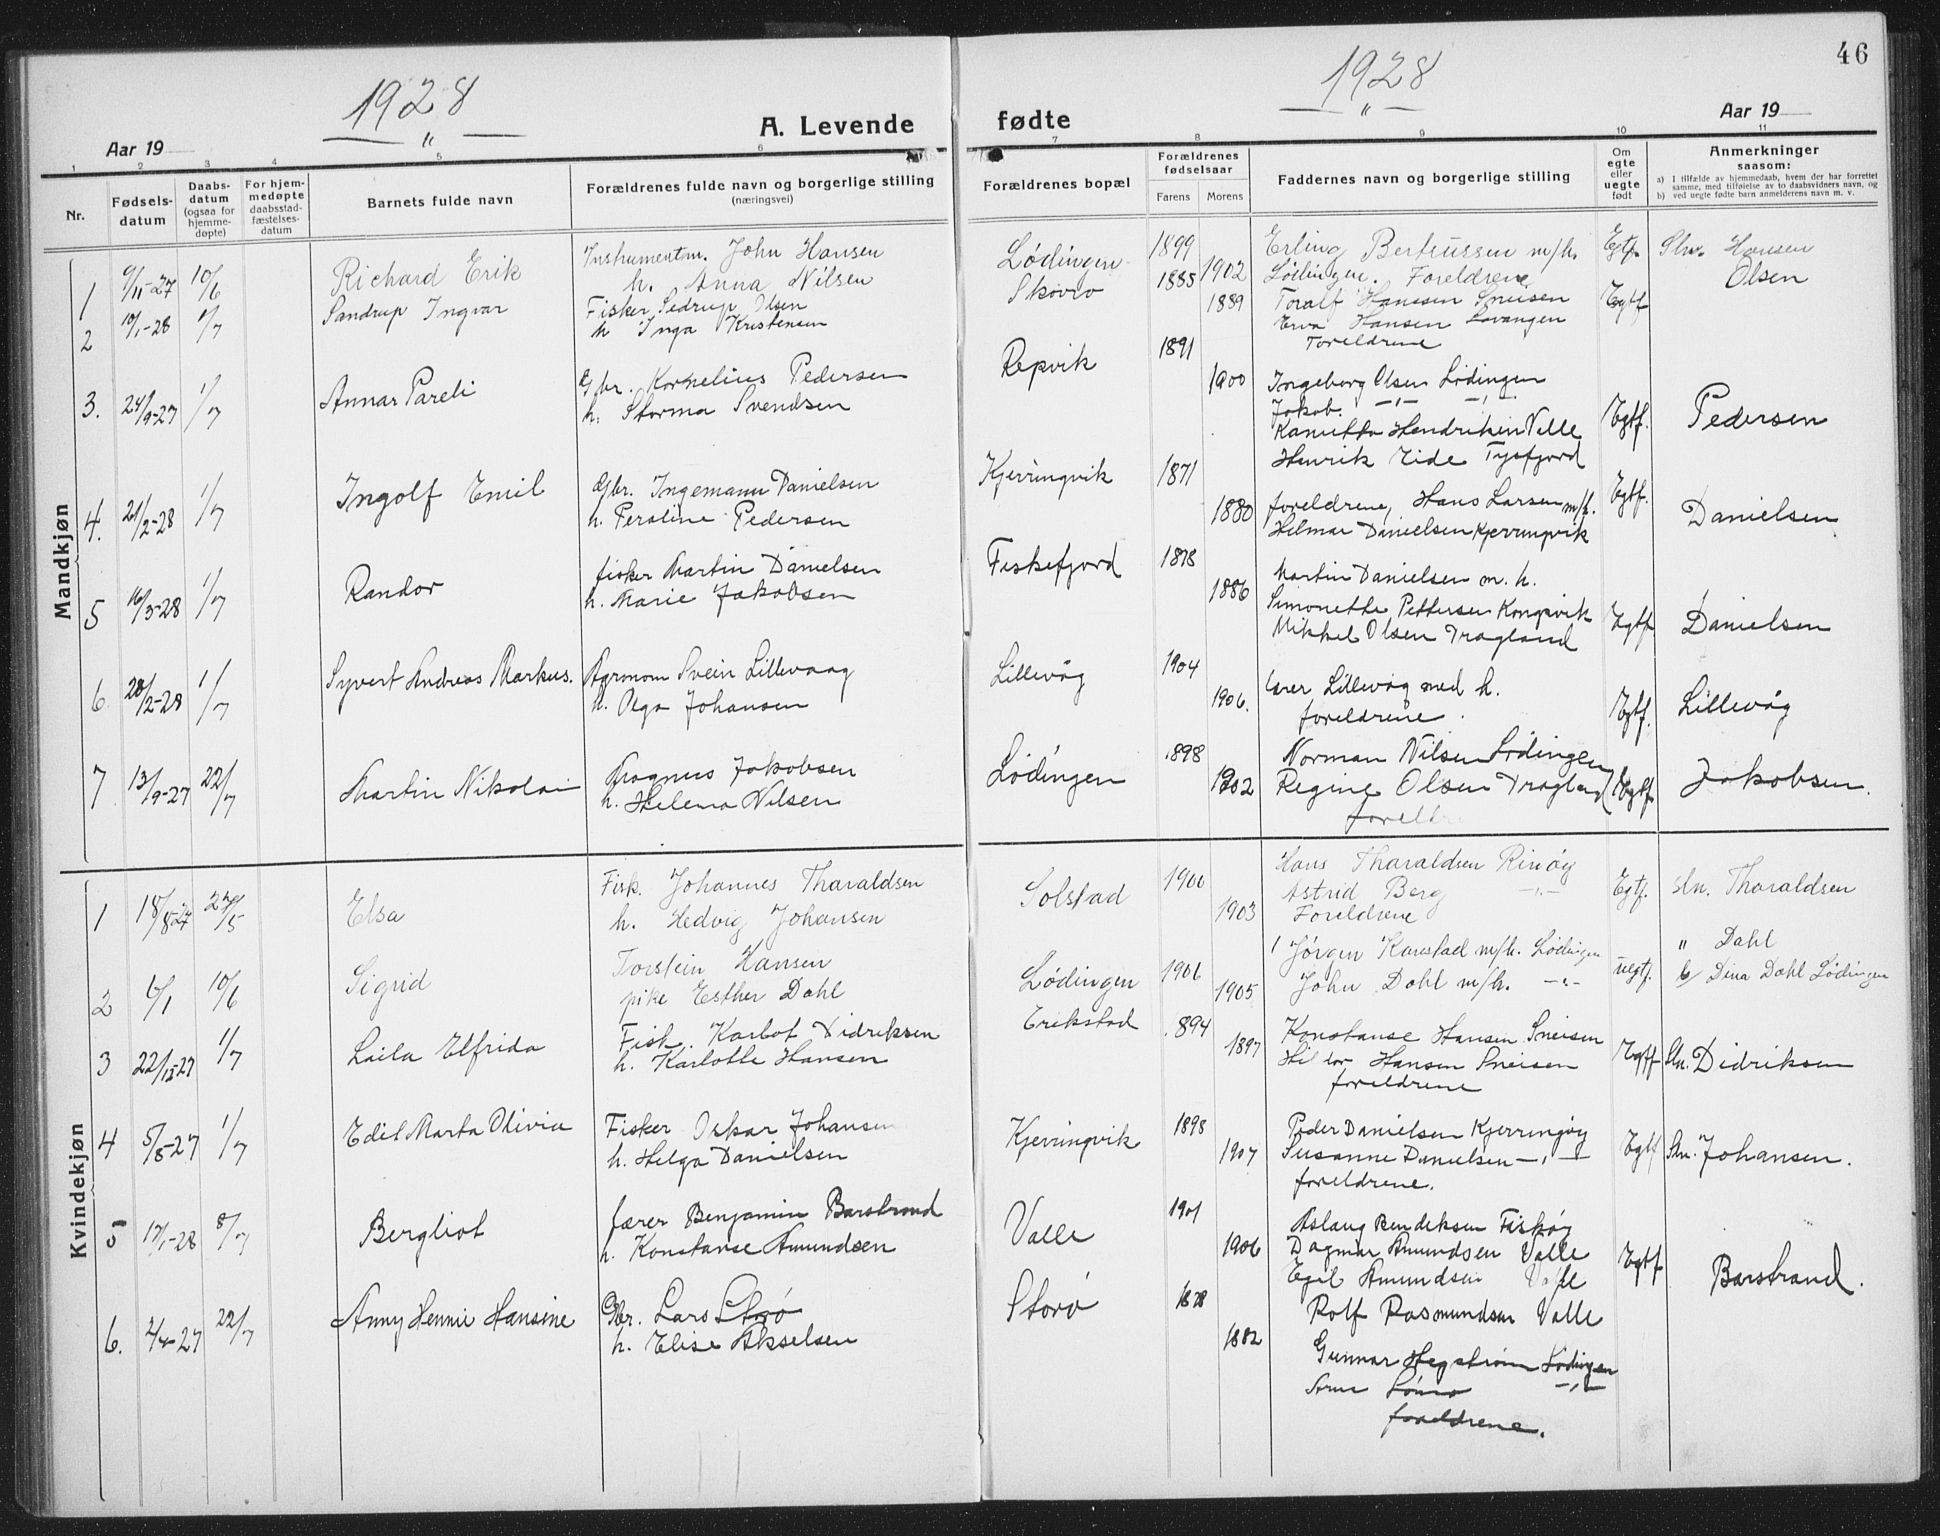 1928
"
Aar 19
A. Levende
1
2
3
4
5
6
Nr.
Fødsels-
datum
Daabs-
datum
(ogsaa for
hjemme-
døpte)
For hjem-
medøpte
daabsstad-
fæstelses-
datum
Barnets fulde navn
Forældrenes fulde navn og borgerlige stilling
(næringsvei)
Mandkjøn
1 9/11-27 10/6 Richard Erik
Instrumentm. John Hansen
h. Anna Nilsen
2 10/1-28 1/7 Sandrup Ingvar
Fisker Sedrup Olsen
h Inga Kristensen
3. 24/9-27 1/7 Annar Pareli
Gbr. Kornelius Pedersen
h. Storma Svendsen
4. 21/2-28 1/7 Ingolf Emil
Gbr. Ingemann Danielsen
h. Peroline Pedersen
5 16/3-28 1/7 Randor
fisker Martin Danielsen
h. Marie Jakobsen
6 28/2-28 1/7 Syvert Andreas Markus.
Agronom Svein Lillevaag
h. Olga Johansen
7 13/9-27 22/7 Martin Nikolai
Magnus Jakobsen
h. Helena Nilsen
Kvindekjøn
1 18/8-27 27/5 Elsa
Fisk. Johannes Tharaldsen
h. Hedvig Johansen
2 6/1 10/6 Sigrid
Torstein Hansen
pike Esther Dahl
3 22/12-27 1/7 Laila Elfrida
Fisk. Karlot Didriksen
h. Karlotte Hansen
4 5/8-27 1/7 Edit Marta Olivia
Fisker Oskar Johansen
h. Helga Danielsen
5 17/1-28 8/7 Bergliot
Lærer Benjamin Barstrand
h. Konstanse Amundsen
6. 2/4-27 22/7 Anny Hennie Hansine
Gbr. Lars Storø
h. Elise Akselsen
1928
"
46
fødte
Aar 19
7
8
9
10
11
Forældrenes bopæl
Forældrenes
fødselsaar
Farens Morens
Faddernes navn og borgerlige stilling
Om
egte
eller
uegte
født
Anmerkninger
saasom:
a) I tilfælde av hjemmedaab, hvem der har forrettet
samme, med tilføielse av to daabsvidners navn, og
b) ved uegte fødte barn anmelderens navn m. v.
Lødingen 1899 1902 Erling Bertrussen m/h. Egtf. Stn. Hansen
Lødingen. Foreldrene
Skovro 1885 1889 Toralf Hanssen Sneisen Egtf Olsen
Hansen Lavangen
Foreldrene
Repvik 1891 1900 Ingeborg Olsen Lødingen
Jakob. -"- -"-
Hendriksen Valle Egtf. Pedersen
Henrik Eide Tysfjord
Kjerringvik 1871 1880 foreldrene, Hans Larsen m/h. Egtf. Danielsen
Hilmar Danielsen Kjerringvik
Fiskefjord 1878 1886 Martin Danielsen m. h.
Simonette Pettersen Kongsvik
Mikkel Olsen Tragland Egtf Danielsen
Lillevåg 1904 1906. Lærer Lillevåg med h.
foreldrene. Egtf. Lillevåg
Lødingen 1898 1902 Norman Nilsen Lødingen
Regine Olsen Tragland Egtf Jakobsen.
foreldr
Solstad 1900 1903 Hans Tharaldsen Rinøy
Astrid Berg -"- Egtf. Stn. Tharaldsen
Foreldrene
Lødingen 1906 1905 Jørgen Karstad m/h. Lødingen uegtf. " Dahl
John Dahl m/h. -"- b/ Dina Dahl Lødingen
Erikstad 1894 1897 Konstanse Hansen Sneisen
Hansen Sneisen Egtf Stn. Didriksen
foreldrene
Kjerringvik 1898 1907 Peder Danielsen Kjerringøy
Susanne Danielsen -"- Egtf Stn. Johansen.
foreldrene.
Valle 1901 1906 Aslaug Bendiksen Fiskøy
Dagmar Amundsen Valle
Egil Amundsen Valle Egtf Barstrand.
Rolf Rasmundsen Valle
Storø 1878 1882 Gunnar Hegstrøm Lødingen
-"-
foreldrene.